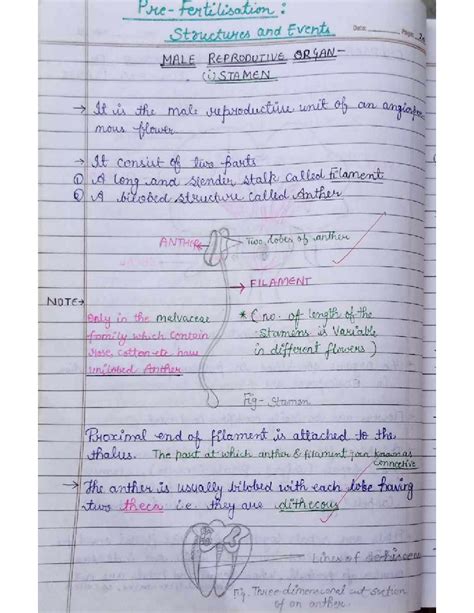 Pre-Fertilisation:
Structures and Events
Date: Page:
MALE REPRODUTIVE ORGAN-
(i) STAMEN
→ It is the male reproductive unit of an angiosper
mous flower
→ It consist of two parts
① A long and slender stalk called filament
② A bilobed structure called Anther
ANTHER
Two lobes of anther
→ FILAMENT
NOTE→
Only in the malvaceae
family which contain
rose, cotton etc have
unilobed Anther
* ( no. of length of the
Stamens is Variable
in different flowers )
Fig- Stamen
Proximal end of filament is attached to the
thalus. The part at which anther & filament join known as
connective
→ The anther is usually bilobed with each lobe having
two theca i.e they are dithecous
Lines of
Fig. Three dimensional cut section
of an anther.